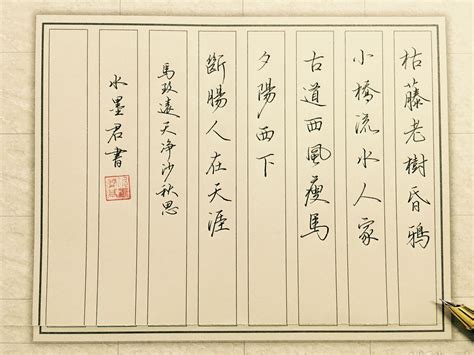 枯藤老樹昏鴉
小橋流水人家
古道西風瘦馬
夕陽西下
斷腸人在天涯
馬致遠天淨沙秋思
水墨君書